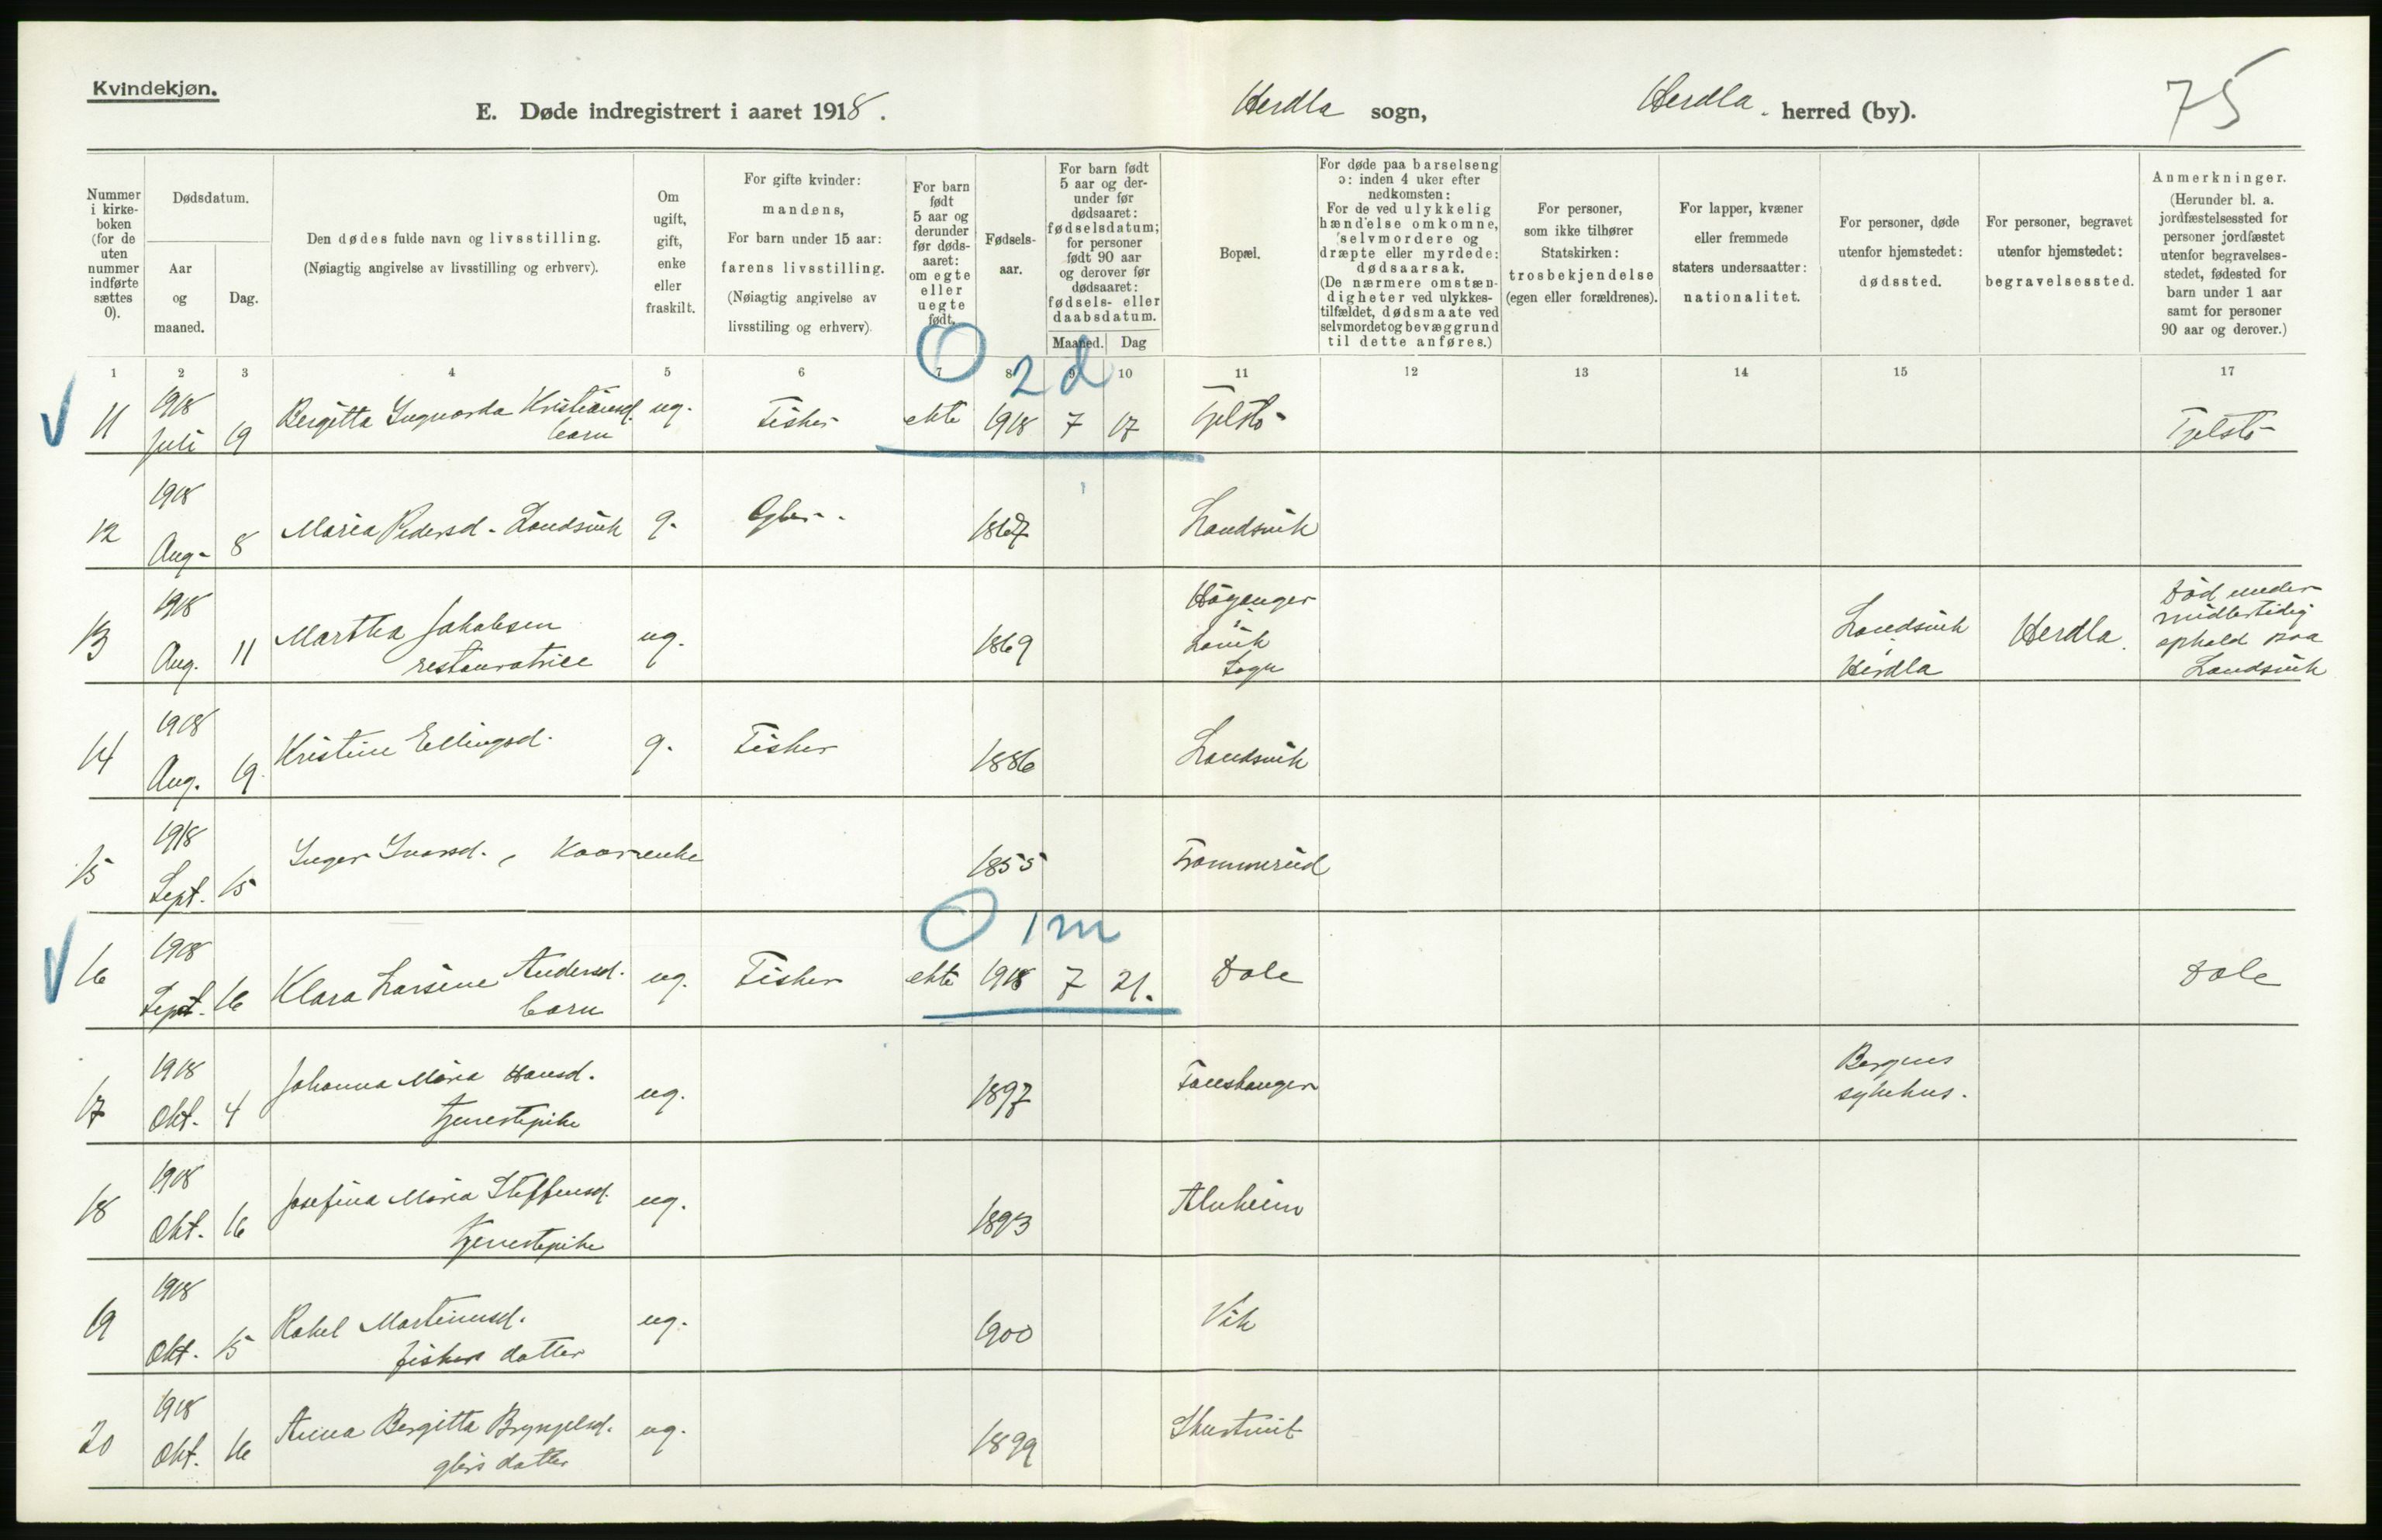 Kvindekjøn.
E. Døde indregistrert i aaret 1918.
Herdla sogn,
Herdla. herred (by).
75
Nummer i kirke-boken (for de uten nummer indførte sættes 0).
Dødsdatum.
Aar og maaned.
Dag.
Den dødes fulde navn og livsstilling.
(Nøiagtig angivelse av livsstilling og erhverv).
Om ugift, gift, enke eller fraskilt.
For gifte kvinder: mandens,
For barn under 15 aar: farens livsstilling.
(Nøiagtig angivelse av livsstiling og erhverv).
For barn født 5 aar og derunder før døds-aaret: om egte eller uegte født.
Fødsels-aar.
For barn født 5 aar og der-under før dødsaaret: fødselsdatum; for personer født 90 aar og derover før dødsaaret: fødsels- eller daabsdatum.
Maaned.
Dag
Bopæl.
For døde paa barselseng ɔ: inden 4 uker efter nedkomsten:
For de ved ulykkelig hændelse omkomne, selvmordere og dræpte eller myrdede: dødsaarsak.
(De nærmere omstæn-digheter ved ulykkes-tilfældet, dødsmaate ved selvmord et og bevæggrund til dette anføres.)
For personer, som ikke tilhører Statskirken: trosbekjendelse (egen eller forældrenes).
For lapper, kvæner eller fremmede staters undersaatter: nationalitet.
For personer, døde utenfor hjemstedet: dødssted.
For personer, begravet utenfor hjemstedet: begravelsessted.
Anmerkninger.
(Herunder bl. a. jordfæstelsessted for personer jordfæstet utenfor begravelses-stedet, fødested for barn under 1 aar samt for personer 90 aar og derover.)
1 2 3 4 5 6 7 8 9 10 11 12 13 14 15 16 17
O 2 d
11 1918 Juli 19 Bergitta Ingvarda Kristiansd. barn ug. Fisker ekte 1918 7 17 Tjelstö Tjelstö
12 1918 Aug. 8 Maria Pedersd. Landsvik g. Gbr. 1867 Landsvik
13 1918 Aug. 11 Martha Jakobsen restauratrice ug. 1869 Höyanger i Lavik Sogn Landsvik i Herdla Herdla. Död under midlertidig ophold paa Landsvik
14 1918 Aug. 19. Kristine Ellingsd. g. Fisker 1886 Landsvik
15 1918 Sept. 15 Inger Ivarsd., Kaarenke 1855
O 1 m
16 1918 Sept. 16 Klara Larsine Andersd. barn ug. Fisker ekte 1918 7 21. Dale Dale
17 1918 Okt. 4 Johanna Maria Hansd. tjenestepike ug. 1897 Fauskanger Bergens sykehus.
18 1918 Okt. 16 Josefina Maria Steffensd. tjenestepike ug. 1893 Alvheim
19 1918 Okt. 15 Rakel Martinusd. fiskers datter ug. 1900 Vik
20 1918 Okt. 16 Anna Bergitta Brynjelsd. gbrs datter ug. 1899